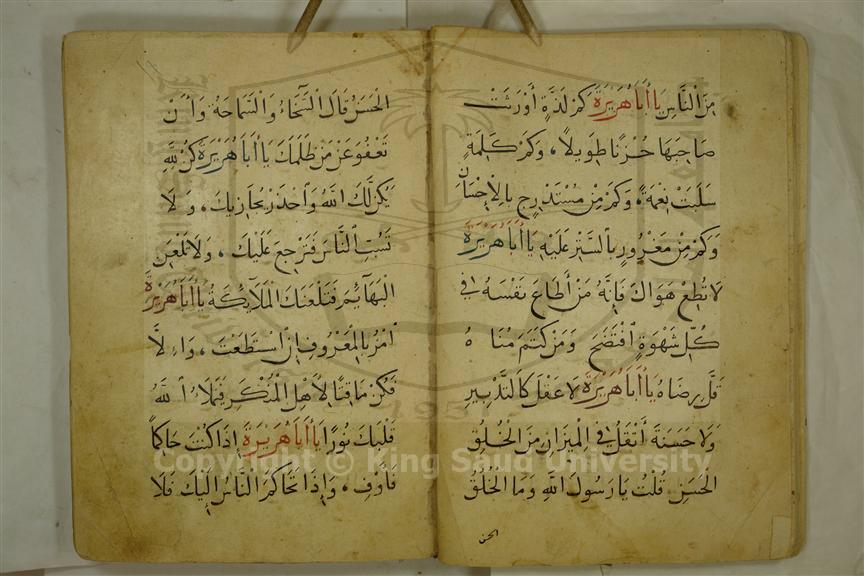 مِنَ النَّاسِ يَا أَبَا هُرَيْرَةَ كَمْ لَذَّةٍ أَوْرَثَتْ
صَاحِبَهَا حُزْنًا طَوِيلًا، وَكَمْ كَلِمَةٍ
سَلَبَتْ نِعْمَةً، وَكَمْ مِنْ مُسْتَدْرَجٍ بِالْإِحْسَانِ
وَكَمْ مِنْ مَغْرُورٍ بِالسَّتْرِ عَلَيْهِ يَا أَبَا هُرَيْرَةَ
لَا تُطِعْ هَوَاكَ فَإِنَّهُ مَنْ أَطَاعَ نَفْسَهُ فِي
كُلِّ شَهْوَةٍ افْتَضَحَ وَمَنْ كَتَمَ مُنَاهُ
قَلَّ رِضَاهُ يَا أَبَا هُرَيْرَةَ لَا عَقْلَ كَالتَّدْبِيرِ
وَلَا حَسَنَةَ أَثْقَلُ فِي الْمِيزَانِ مِنَ الْخُلُقِ
الْحَسَنِ قُلْتُ يَا رَسُولَ اللَّهِ وَمَا الْخُلُقُ
الحسن
الْحَسَنُ قَالَ السَّخَاءُ وَالسَّمَاحَةُ وَأَنْ
تَعْفُوَ عَنْ مَنْ ظَلَمَكَ يَا أَبَا هُرَيْرَةَ كُنْ لِلَّهِ
يَكُنْ لَكَ اللَّهُ وَاحْذَرْ يُجَازِيكَ، وَلَا
تَسُبَّ النَّاسَ فَتَرْجِعَ عَلَيْكَ، وَلَا تَلْعَنِ
الْبَهَائِمَ فَتَلْعَنَكَ الْمَلَائِكَةُ يَا أَبَا هُرَيْرَةَ
أْمُرْ بِالْمَعْرُوفِ إِنِ اسْتَطَعْتَ، وَإِلَّا
فَكُنْ مَاقِتًا لِأَهْلِ الْمُنْكَرِ فَيَمْلَأُ اللَّهُ
قَلْبَكَ نُورًا يَا أَبَا هُرَيْرَةَ إِذَا كُنْتَ حَاكِمًا
فَأَوْفِ، وَإِذَا تَحَاكَمَ النَّاسُ إِلَيْكَ فَلَا
Copyright © King Saud University
195